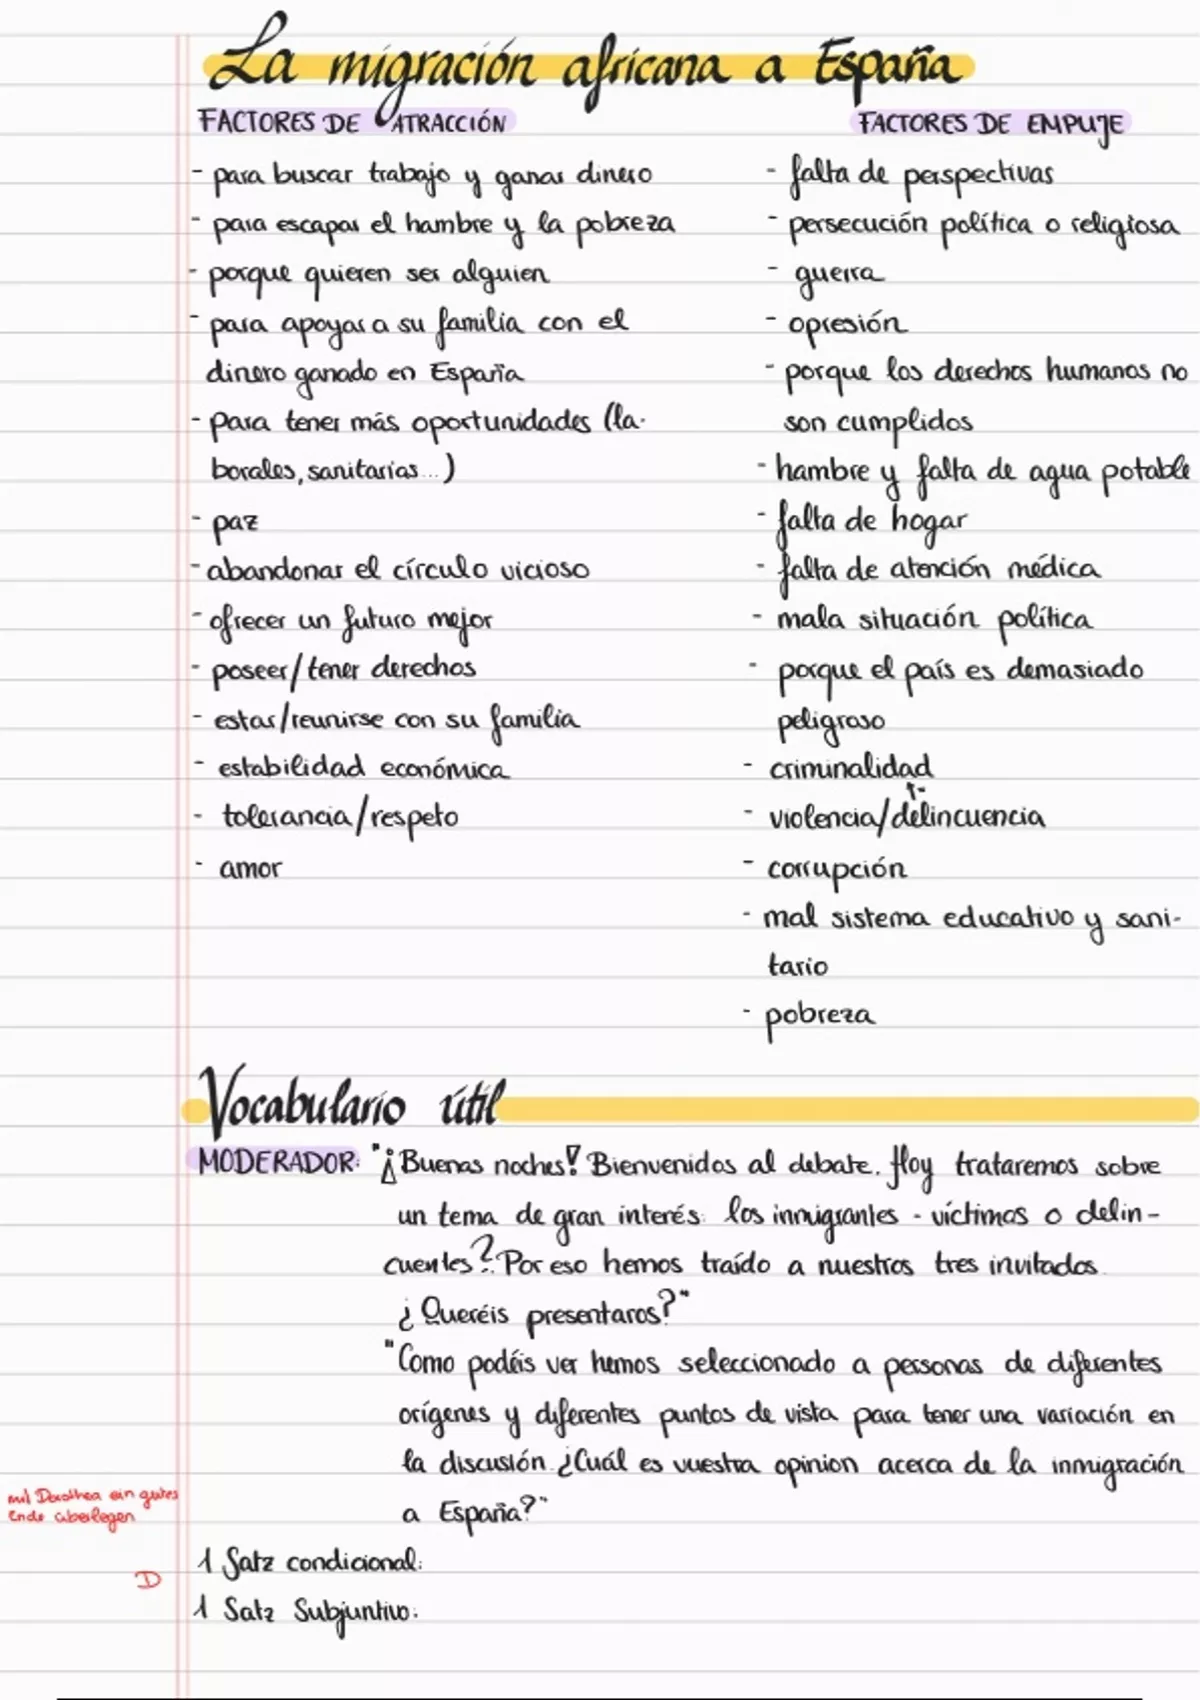 La migración africana a España
FACTORES DE ATRACCIÓN
- para buscar trabajo y ganar dinero
- para escapar el hambre y la pobreza
- porque quieren ser alguien
- para apoyar a su familia con el
dinero ganado en España
- para tener más oportunidades (la-
borales, sanitarias...)
- paz
- abandonar el círculo vicioso
- ofrecer un futuro mejor
- poseer/tener derechos
- estar/reunirse con su familia
- estabilidad económica
- tolerancia/respeto
- amor
FACTORES DE EMPUJE
- falta de perspectivas
- persecución política o religiosa
- guerra
- opresión
- porque los derechos humanos no
son cumplidos
- hambre y falta de agua potable
- falta de hogar
- falta de atención médica
- mala situación política
- porque el país es demasiado
peligroso
- criminalidad
- violencia/delincuencia
- corrupción
- mal sistema educativo y sani-
tario
- pobreza
Vocabulario útil
MODERADOR: "¡Buenas noches! Bienvenidos al debate. Hoy trataremos sobre
un tema de gran interés: los inmigrantes - víctimas o delin-
cuentes? Por eso hemos traído a nuestros tres invitados.
¿Queréis presentaros?"
"Como podéis ver hemos seleccionado a personas de diferentes
orígenes y diferentes puntos de vista para tener una variación en
la discusión. ¿Cuál es vuestra opinion acerca de la inmigración
a España?"
mit Dorothea ein gutes
Ende überlegen
1 Satz condicional:
D
1 Satz Subjuntivo: